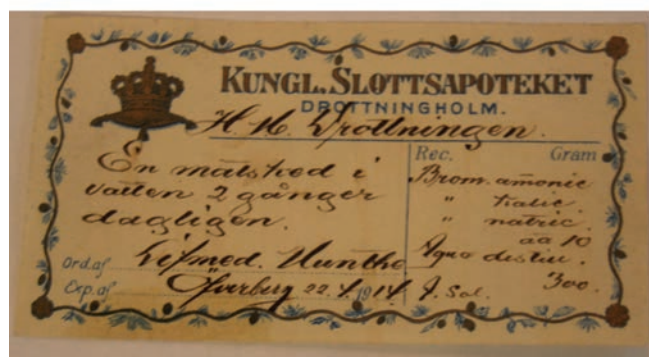 KUNGL. SLOTTSAPOTEKET
DROTTNINGHOLM.
H. M. Drottningen.
En matsked i
vatten 2 gånger
dagligen.
Ord. af Lifmed. Munthe
Exp. af 22. 1914
Rec. Gram
Brom. amonic
" kalic
" natric.
āā 10
Aqua destill.
300.
Sol.